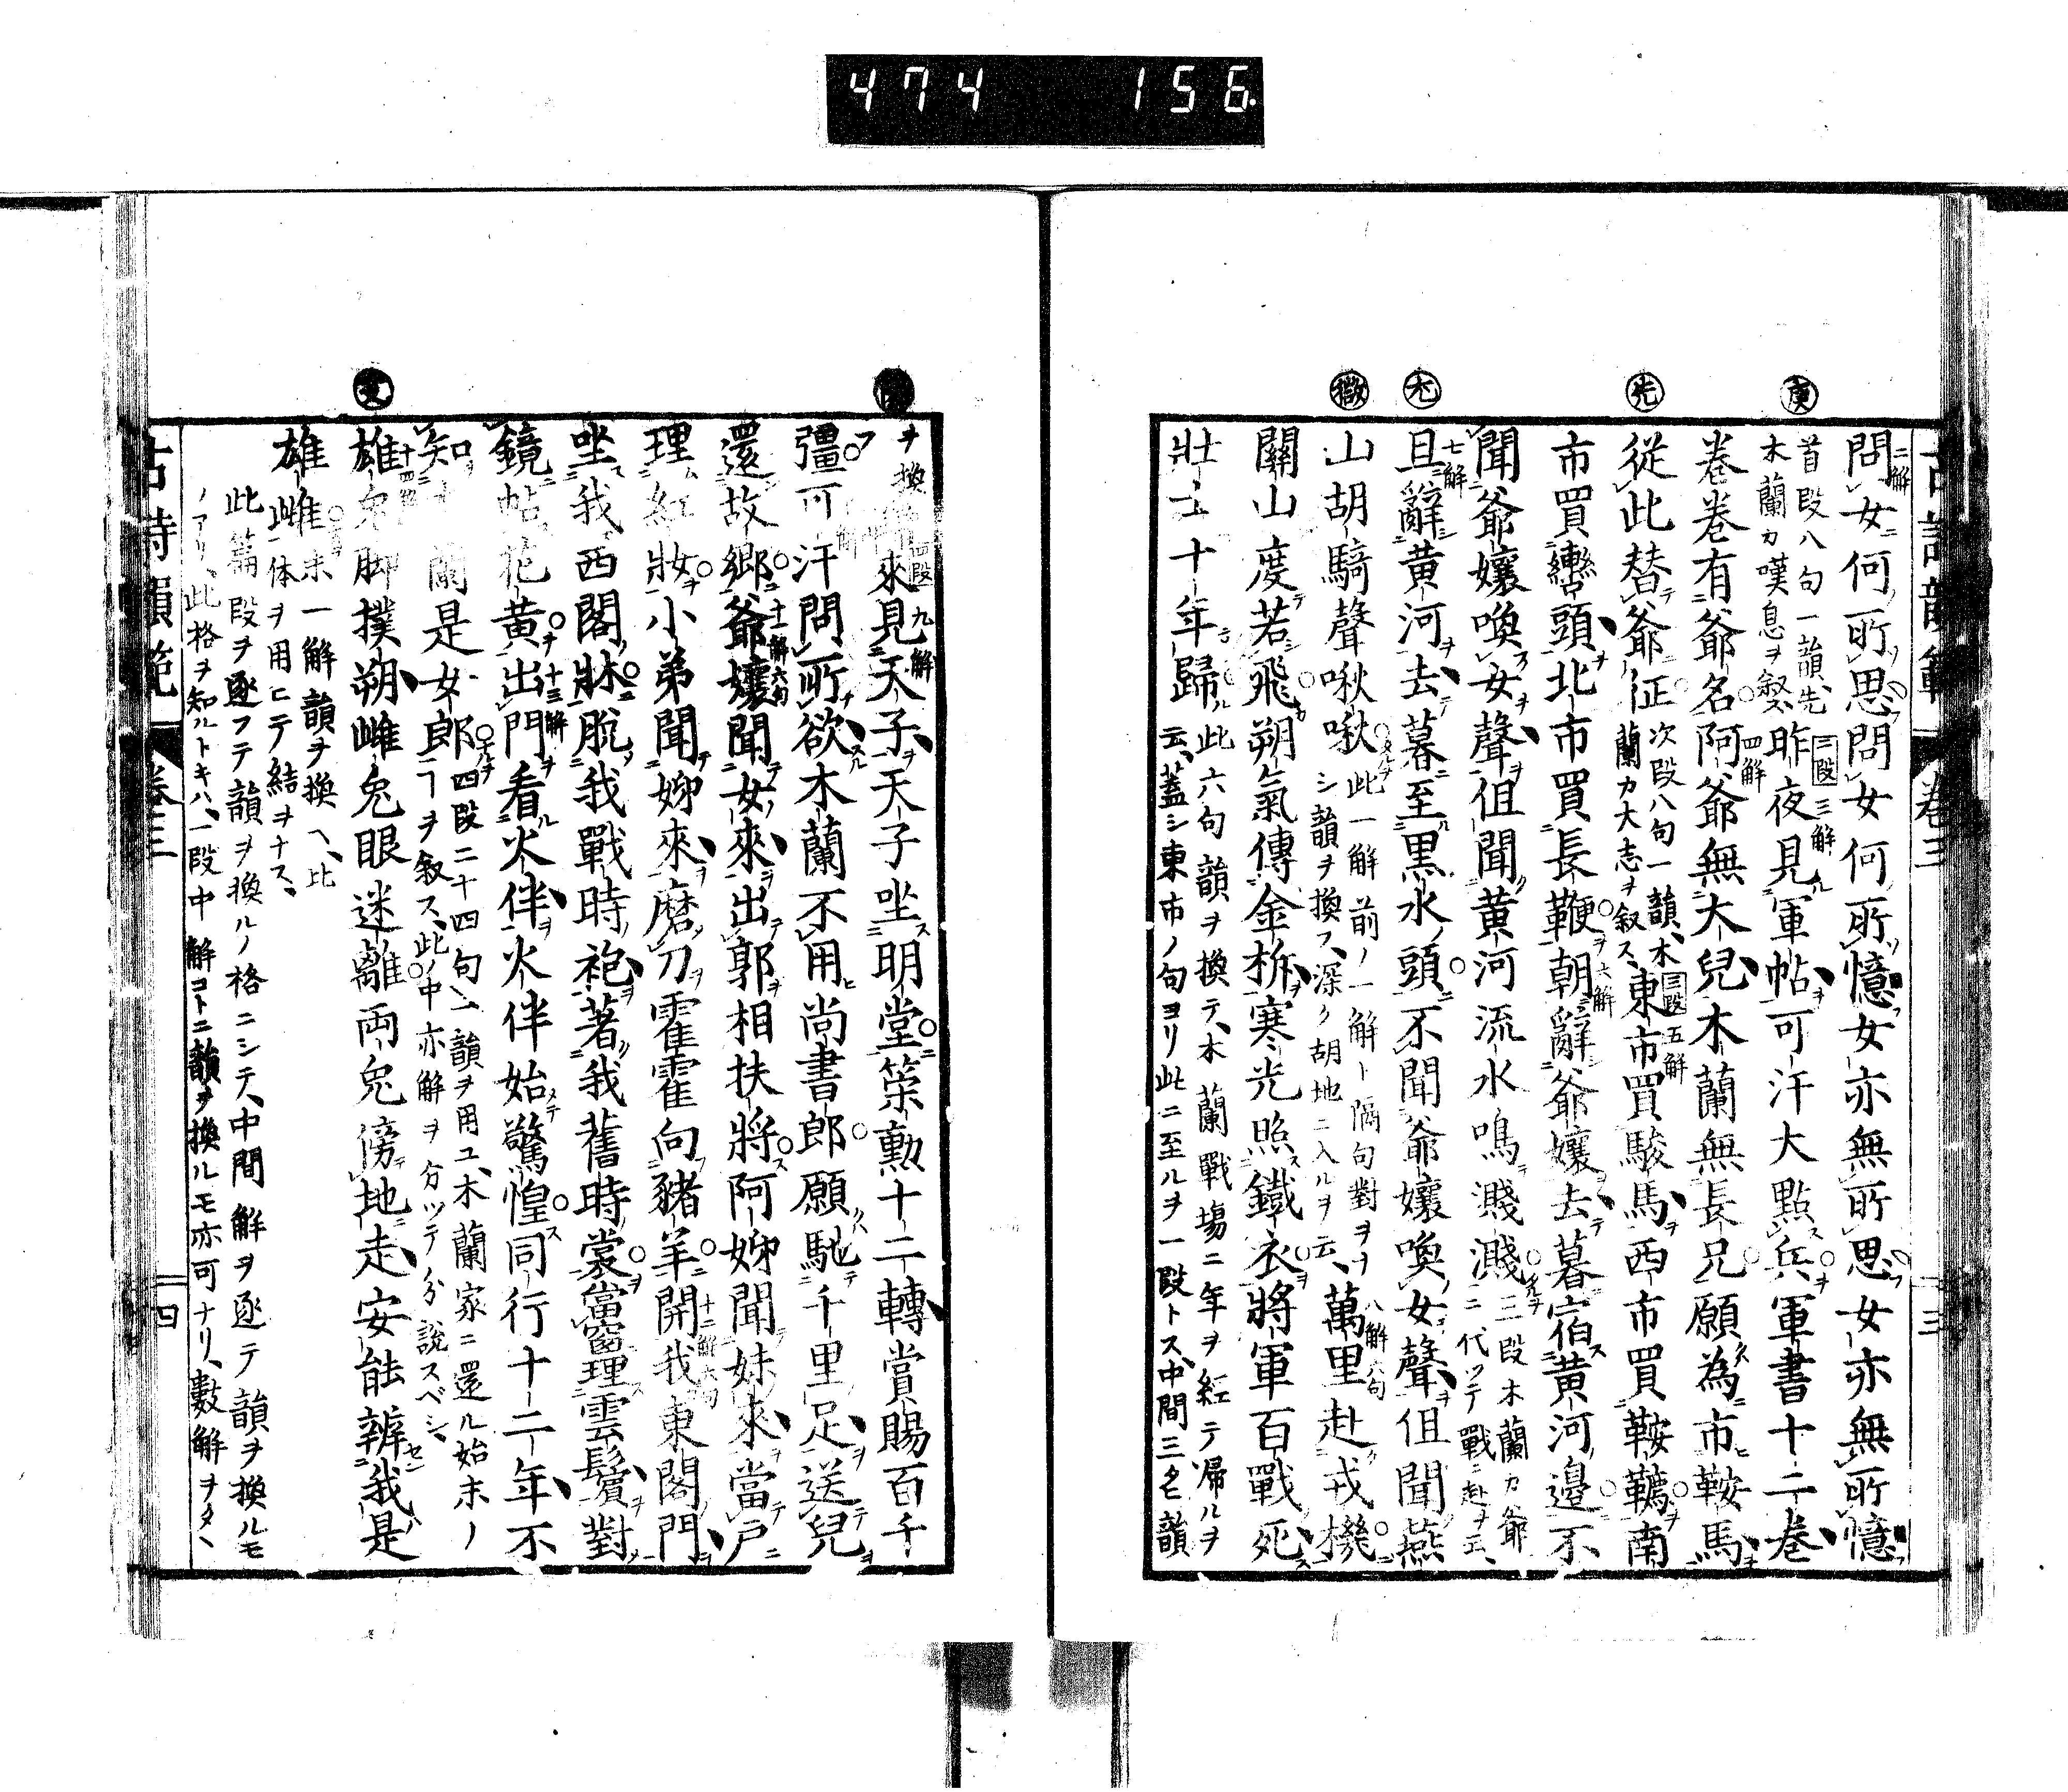 474 156
庚
先
尤
微
問女何所思問女何所憶女亦無所思女亦無所憶
二解
首段八句一韻先
木蘭カ嘆息ヲ叙ス
二段 三解
昨夜見軍帖可汗大點兵軍書十二卷
卷卷有爺名阿爺無大兒木蘭無長兄願為市鞍馬
四解
從此替爺征
次段八句一韻、木
蘭カ大志ヲ叙ス、
三段 五解
東市買駿馬西市買鞍韉南
市買轡頭北市買長鞭朝辭爺孃去暮宿黄河邊不
六解
聞爺孃喚女聲但聞黄河流水鳴濺濺
三段木蘭カ爺
ニ代ツテ戰ニ赴ヲ云、
七解
旦辭黄河去暮至黒水頭不聞爺孃喚女聲但聞燕
山胡騎聲啾啾
此一解前ノ一解ト隔句對ヲヲ
シ韻ヲ換フ、深ク胡地ニ入ルヲ云、
八解六句
萬里赴戎機
關山度若飛朔氣傳金柝寒光照鐵衣將軍百戰死
壯士十年歸
此六句韻ヲ換テ、木蘭戰場ニ年ヲ経テ帰ルヲ
云、蓋シ東市ノ句ヨリ此ニ至ルヲ一段トス、中間三タヒ韻
ヲ換
四段 九解
來見天子天子坐明堂策勲十二轉賞賜百千
彊可汗問所欲木蘭不用尚書郎願馳千里足送兒
還故郷爺孃聞女來出郭相扶將阿姊聞妹來當戸
十一解六句
理紅妝小弟聞姊來磨刀霍霍向豬羊開我東閣門
十二解六句
坐我西閣牀脱我戰時袍著我舊時裳當窗理雲鬢對
鏡帖花黄出門看火伴火伴始驚惶同行十二年不
十三解
知木蘭是女郎
四段二十四句一韻ヲ用ユ、木蘭家ニ還ル始末ノ
ヿヲ叙ス、此ノ中亦解ヲ分ツテ分説スベシ、
十四解
雄兔脚撲朔雌兔眼迷離両兔傍地走安能辨我是
雄雌
末一解韻ヲ換ヘ、比
此一体ヲ用ヒテ結ヲナス、
此篇段ヲ逐フテ韻ヲ換ルノ格ニシテ、中間解ヲ逐テ韻ヲ換ルモ
ノアリ、此格ヲ知ルトキハ、一段中解コトニ韻ヲ換ルモ亦可ナリ、數解ヲタヽ
古詩韻範
卷三
四